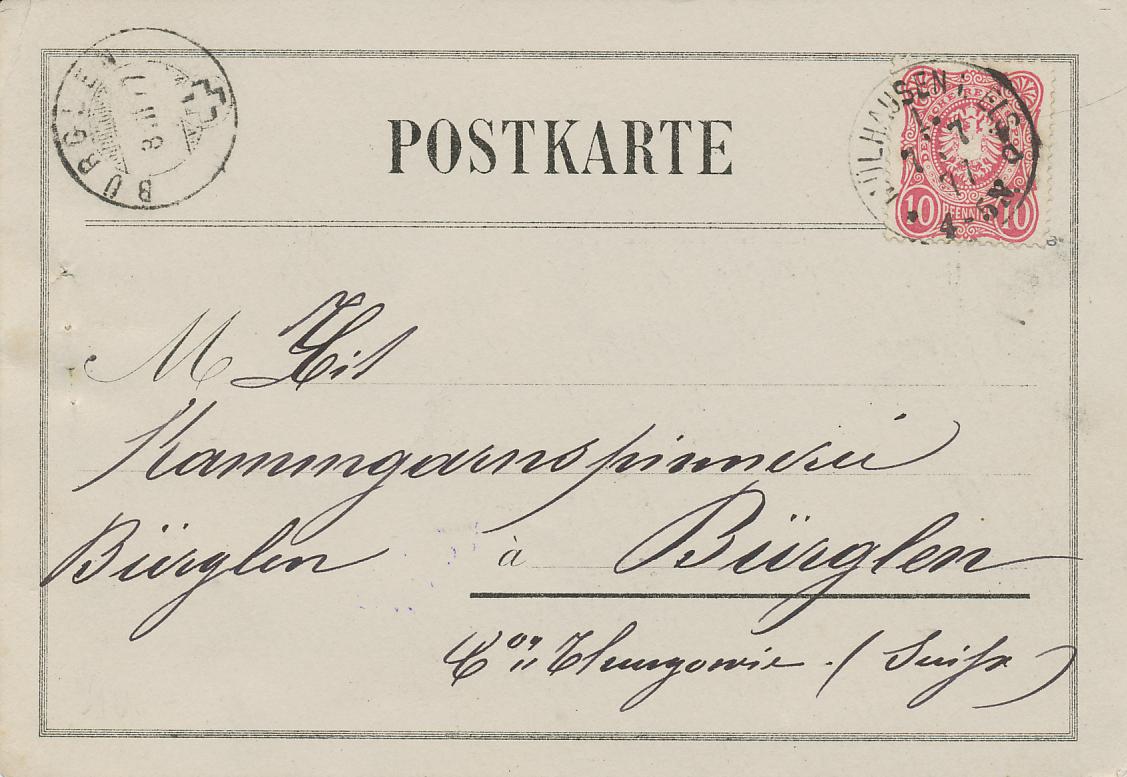 BÜRGLEN
POSTKARTE
MÜLHAUSEN i. ELS.
10 PFENNIG 10
M
Kammgarnspinnerei
Bürglen à Bürglen
Con Thurgovie. (Suisse)